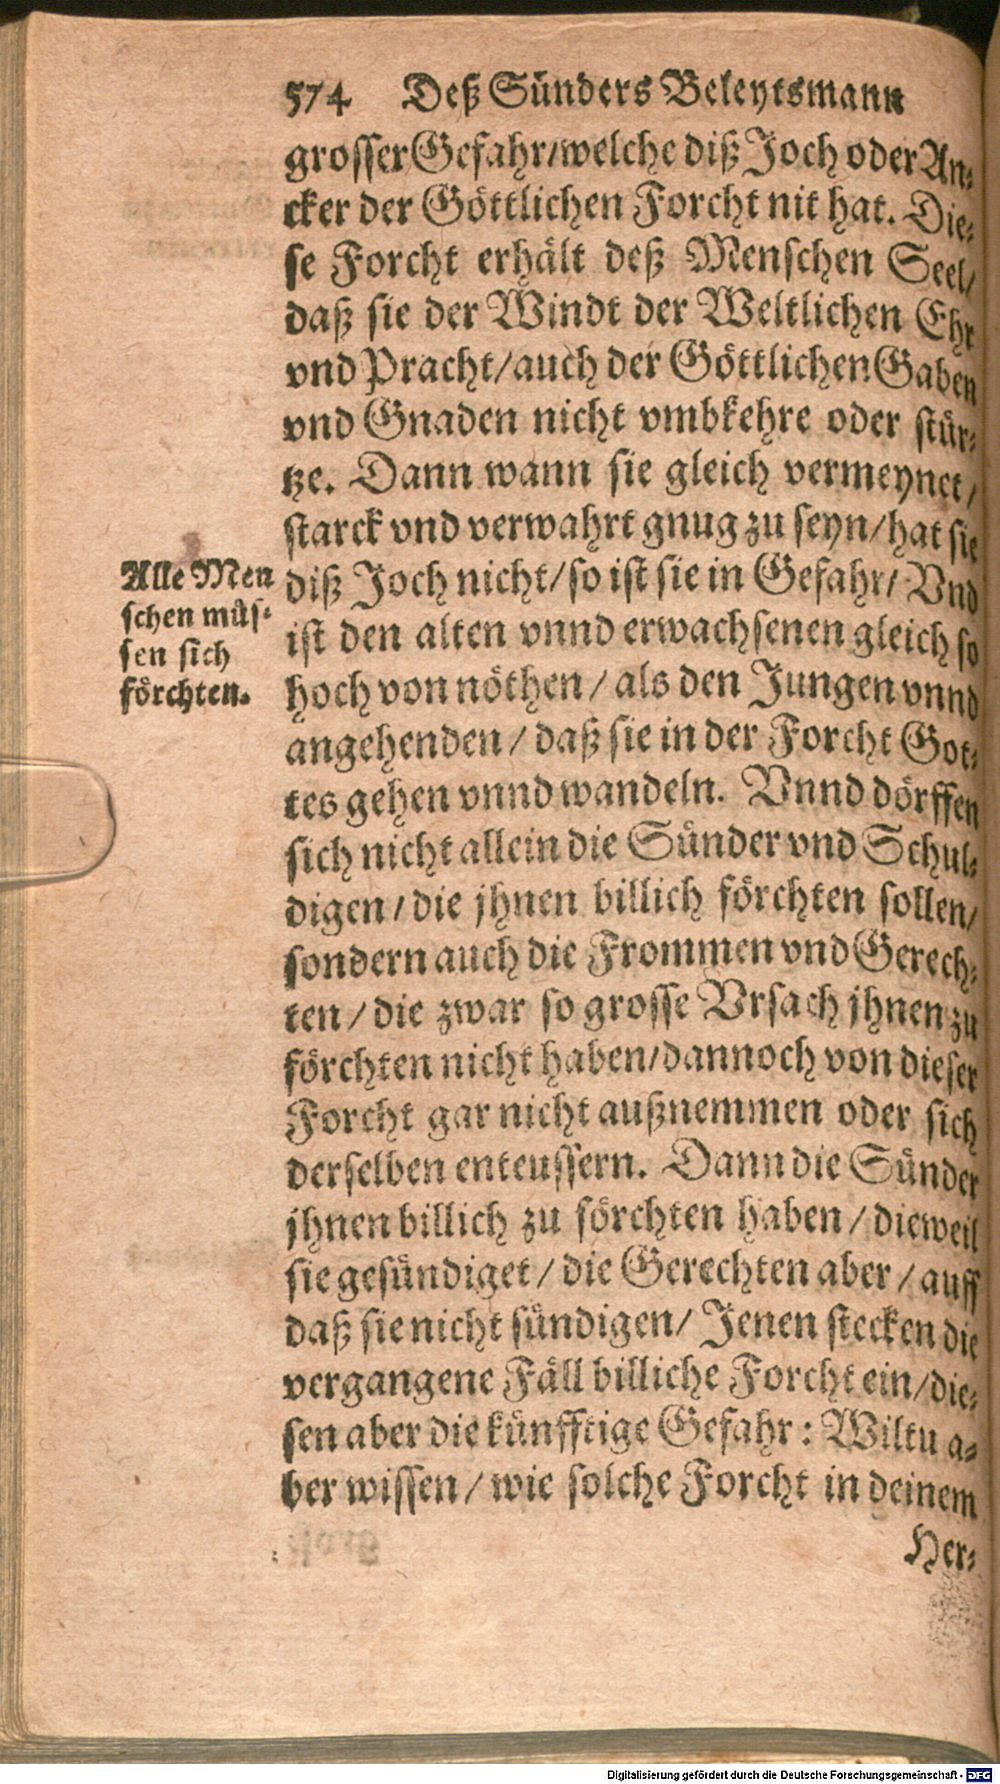 574 Deß Sünders Beleytsmann
grosser Gefahr/welche diß Joch oder An-
cker der Göttlichen Forcht nit hat. Die-
se Forcht erhält deß Menschen Seel/
daß sie der Windt der Weltlichen Ehr
vnd Pracht/auch der Göttlichen Gaben
vnd Gnaden nicht vmbkehre oder stür-
tze. Dann wann sie gleich vermeynet/
starck vnd verwahrt gnug zu seyn/hat sie
diß Joch nicht/so ist sie in Gefahr/ Vnd
ist den alten vnnd erwachsenen gleich so
hoch von nöthen/als den Jungen vnnd
angehenden/daß sie in der Forcht Got-
tes gehen vnnd wandeln. Vnnd dörffen
sich nicht allein die Sünder vnd Schul-
digen/die jhnen billich förchten sollen/
sondern auch die Frommen vnd Gerech-
ten/die zwar so grosse Vrsach jhnen zu
förchten nicht haben/dannoch von dieser
Forcht gar nicht außnemmen oder sich
derselben enteussern. Dann die Sünder
jhnen billich zu förchten haben/dieweil
sie gesündiget/die Gerechten aber/auff
daß sie nicht sündigen/ Jenen stecken die
vergangene Fäll billiche Forcht ein/die-
sen aber die künfftige Gefahr: Wiltu a-
ber wissen/wie solche Forcht in deinem
Her-
Alle Men
schen müs-
sen sich
förchten.
Digitalisierung gefördert durch die Deutsche Forschungsgemeinschaft - DFG